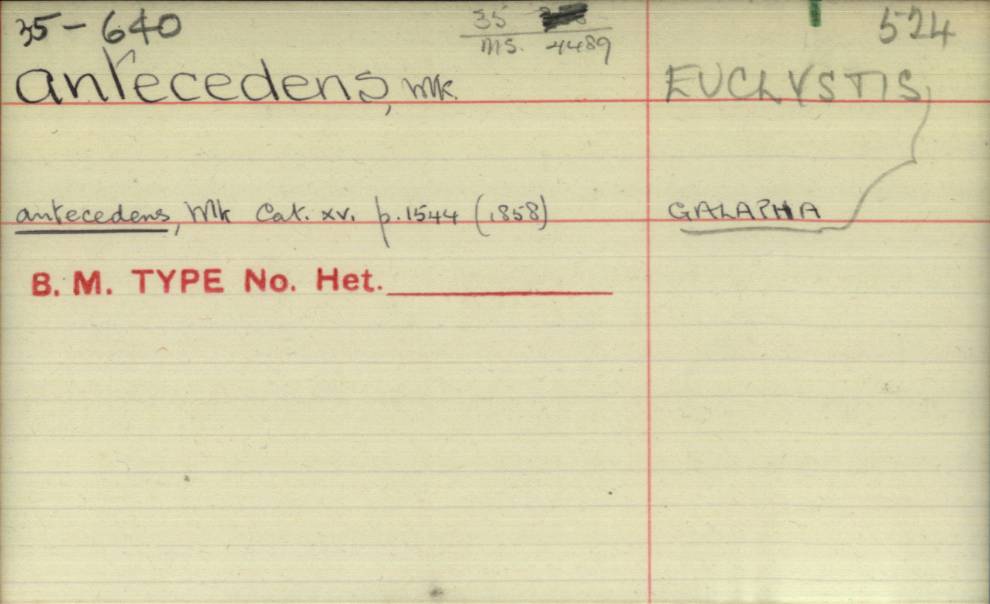 35-640
35
ms. 4489
524
antecedens, Wlk.
EUCLYSTIS
antecedens, Wlk Cat. xv. p.1544 (1858)
GALAPHA
B. M. TYPE No. Het.